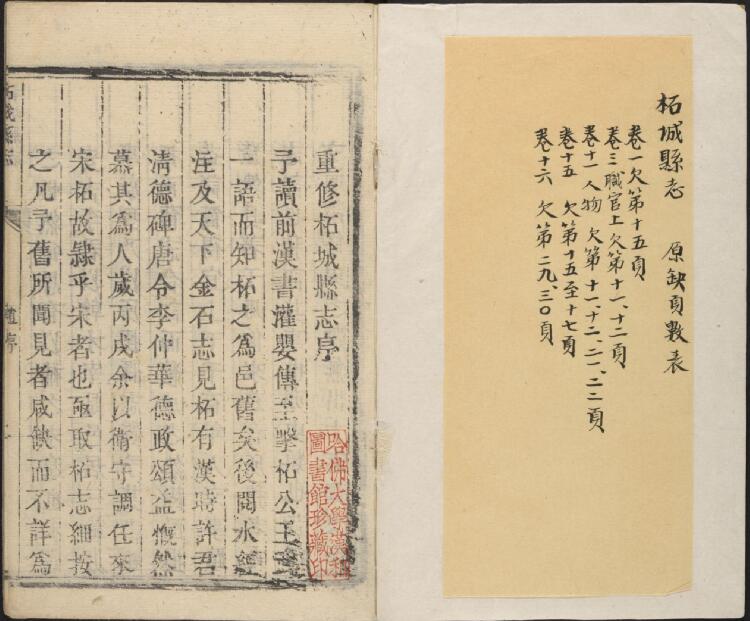 柘城縣志 原缺頁數表
卷一欠第十五頁
卷三職官上欠第十一、十二頁
卷十一人物 欠第十一、十二、二一、二二頁
卷十五 欠第十五至十七頁
卷十六 欠第二九、三〇頁
重修柘城縣志序
予讀前漢書灌嬰傳至擊柘公王武
一語而知柘之為邑舊矣後閱水經
注及天下金石志見柘有漢時許君
清德碑唐令李仲華德政頌益慨然
慕其為人歲丙戌余以衛守調任來
宋柘故隸乎宋者也亟取柘志細按
之凡予舊所聞見者咸缺而不詳為
柘城縣志
序
哈佛大學漢和
圖書館珍藏印